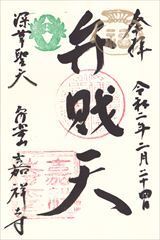 奉拝
令和二年二月二十四日
弁財天
深草聖天
嘉祥寺